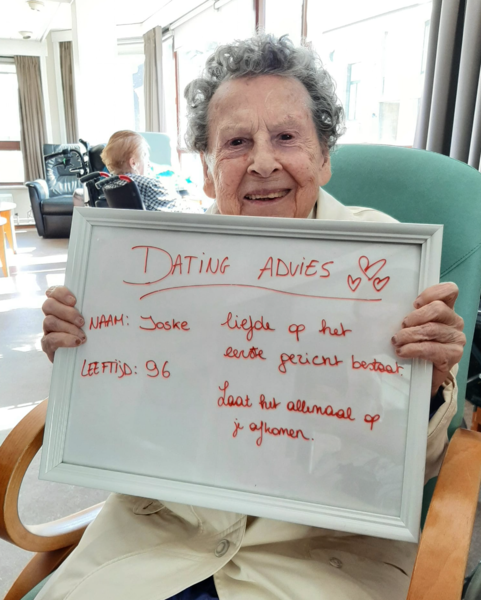 DATING ADVIES
NAAM: Joske
LEEFTIJD: 96
liefde op het
eerste gezicht bestaat.
Laat het allemaal op
je afkomen.